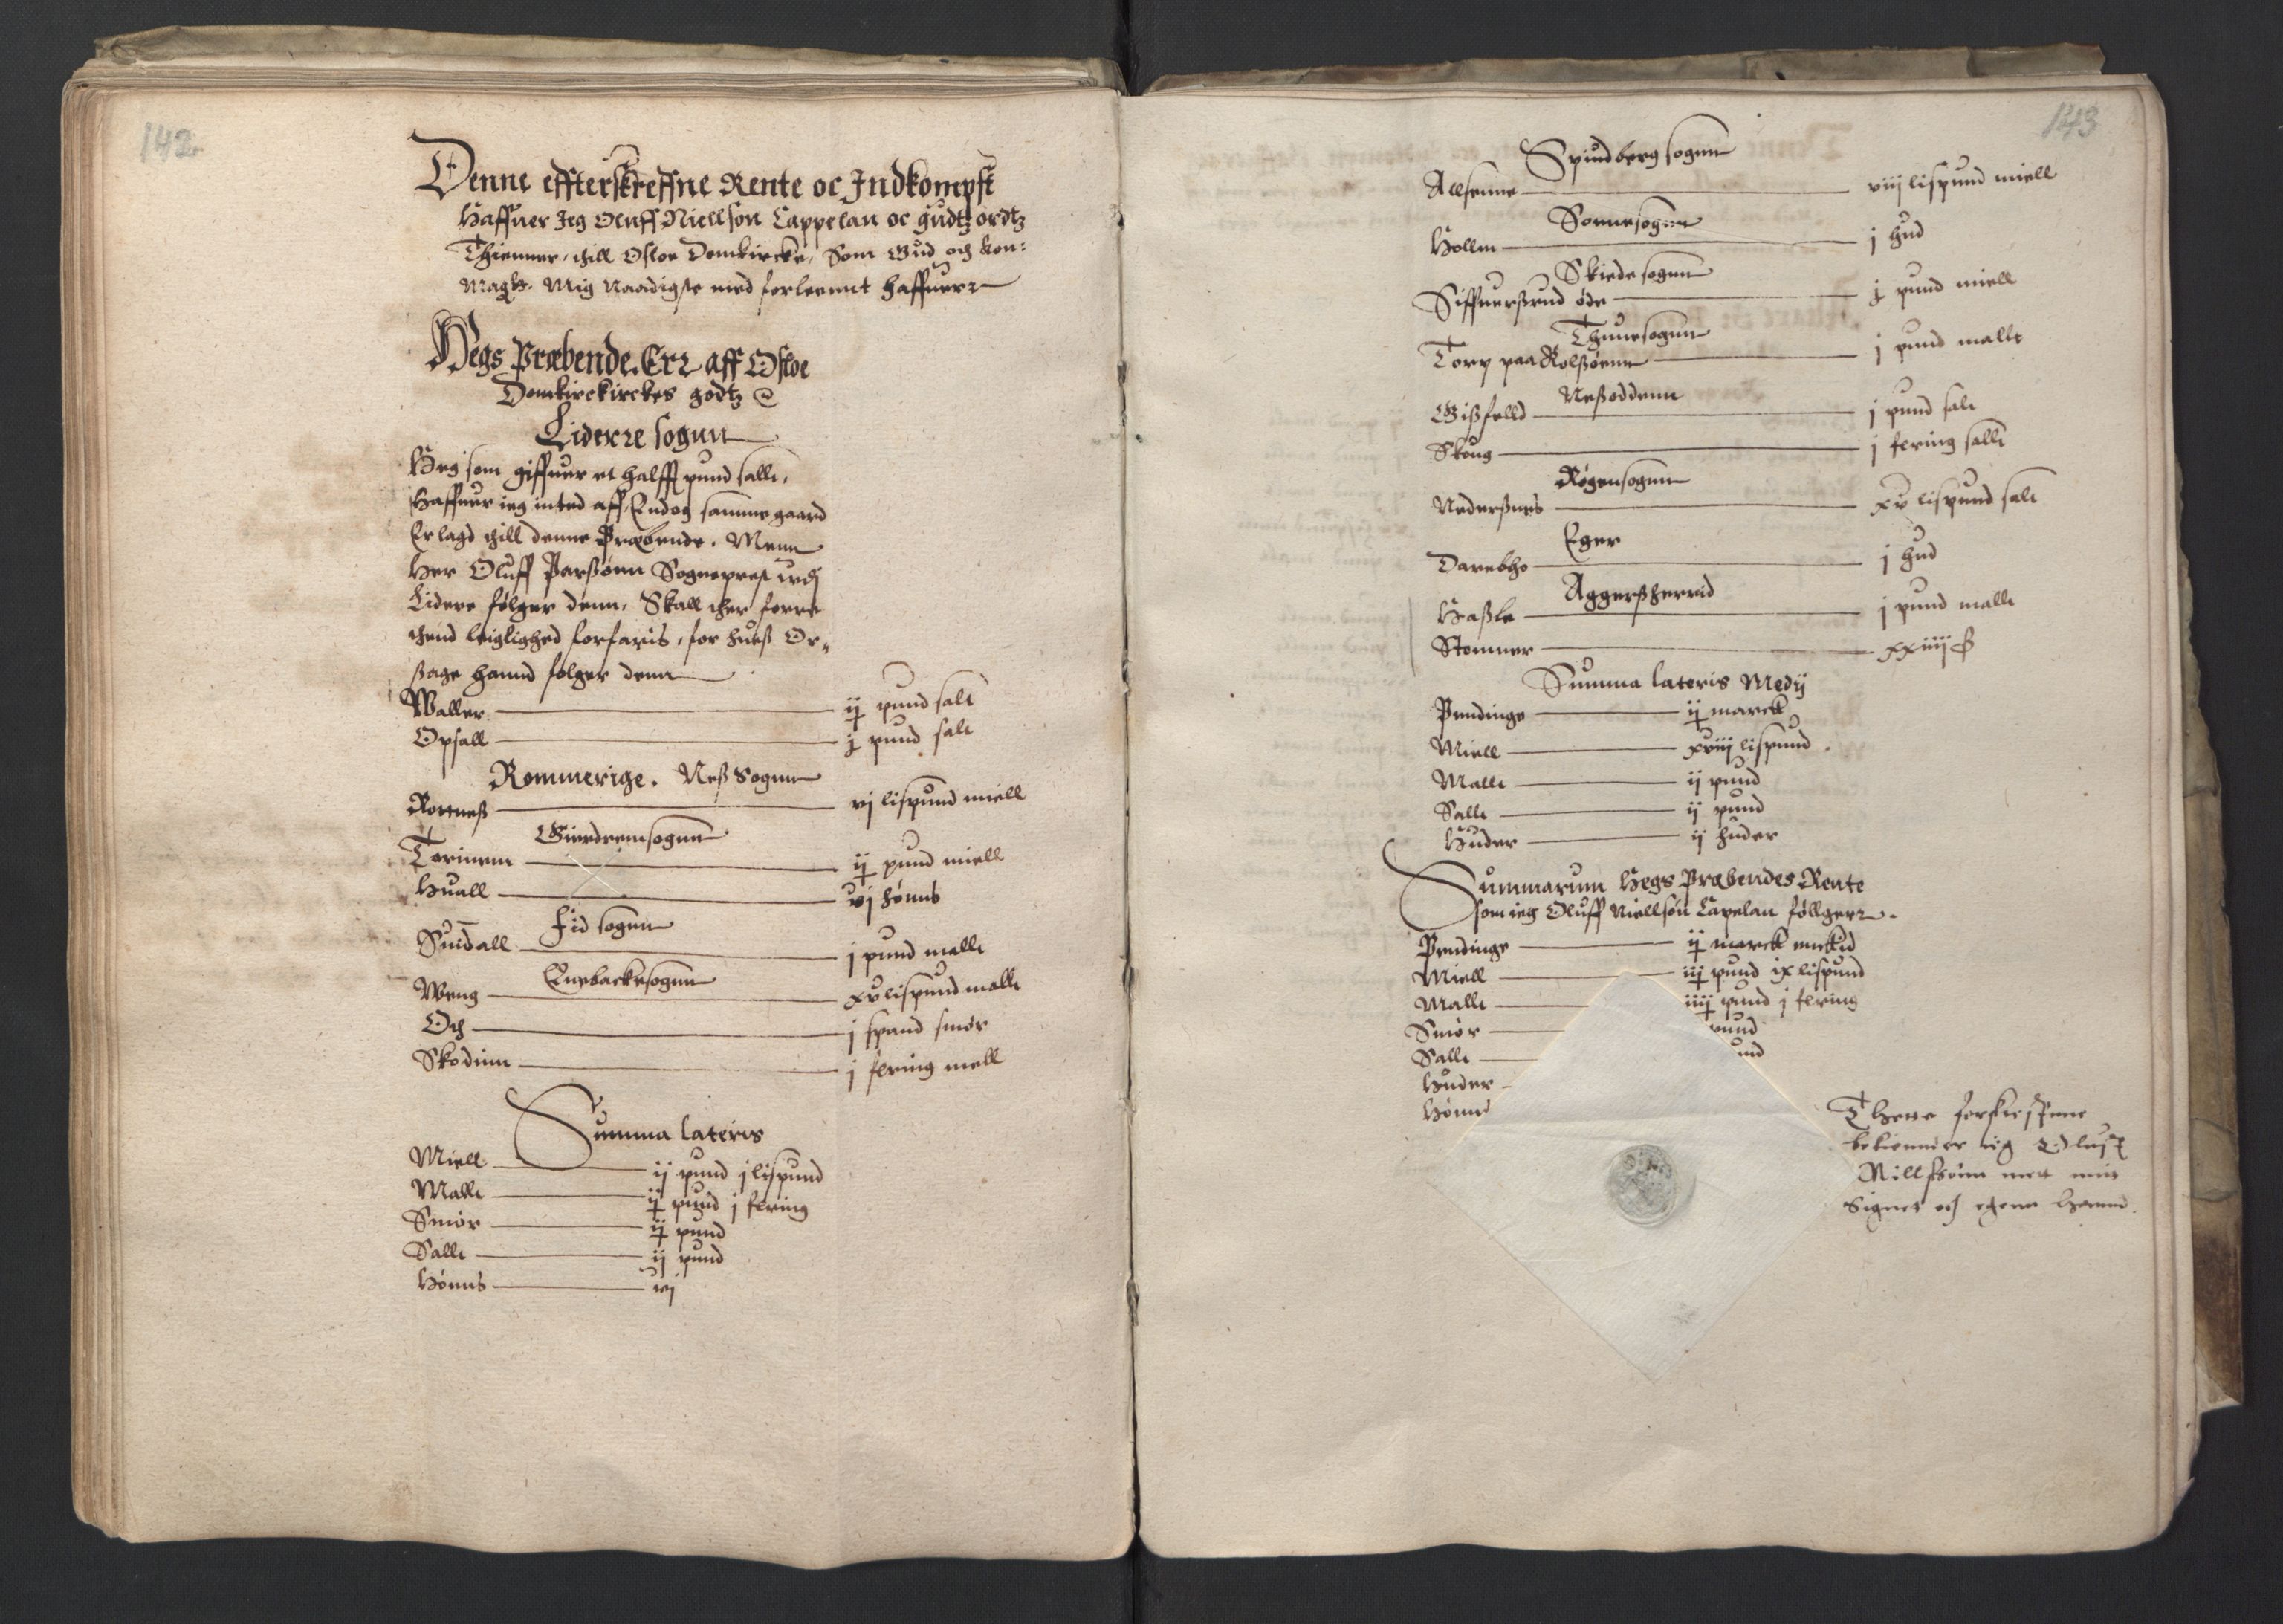 142
Denne effterskreffne Rente oc Indkompst
Haffuer Jeg Oluff Niellson Cappelan oc gudtz ordtz
Thienner, thill Osloe Domkircke, Som Gud och kon:
Magtz. Mig Naadigste med forleennt haffuerr
Hegs Præbende. Err aff Osloe
Domkirckirckes godtz
Liderre sogun
Heg som giffuer et halfft pund sallt,
Haffuer ieg inted aff, Endog samme gaard
Er lagd thill denne Præbende. Menn
Her Oluff Parssønn Sogneprest vdj
Lidere følger denn, Skall ther forre
thend leiglighed forfaris, for huess Or„
ssage hannd følger denn
Waller ij pund salt
Opsall j pund salt
Rommerige. Ness Sogunn
Rottness vj lispund miell
Gierdremsogunn
Torinem ij pund miell
Huall vj hønns
Fid sogunn
Sundall j pund mallt
Enebackesogunn
Weng xv lispund mallt
Och j spand smør
Skodinn j fering mell
Summa lateris
Miell ij pund j lispund
Mallt ij pund j fering
Smør ij pund
Sallt ij pund
Hønns vj
143
Spindberg sogunn
Allsenne viij lispund miell
Sonnesogunn
Hollm j hud
Skiedesogunn
Siffuerssrud øde j pund miell
Thunesogunn
Torp paa Rolssønn j pund mallt
Nessoddenn
Gissfelld j pund salt
Skoug j fering sallt
Røgensogunn
Nederssnes xv lispund salt
Eger
Darebho j hud
Aggerssherrid
Hassle j pund mallt
Stommer xxiiij ß
Summa lateris Medij
Pendinge ij marck
Miell xviij lispund
Mallt ij pund
Sallt ij pund
Huder ij huder
Summarum Hegs Præbendes Rente
som ieg Oluff Niellsøn Capelan føllgerr.
Pendinge ij marck
Miell iij pund ix lispund
Mallt iiij pund j fering
Smør pund
Sallt und
Huder
Hønns
Thette forskreffnne
bekiennder ieg Oluff
Nillssønn mett mit
Signet och egenn Hannd.